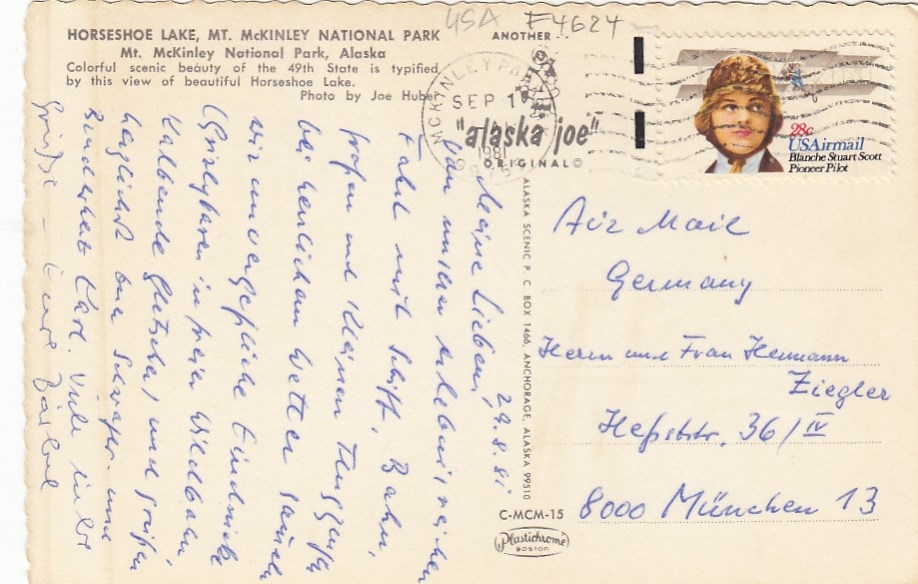 USA F4624
HORSESHOE LAKE, MT. McKINLEY NATIONAL PARK
Mt. McKinley National Park, Alaska
Colorful scenic beauty of the 49th State is typified
by this view of beautiful Horseshoe Lake.
Photo by Joe Huber
ANOTHER
"alaska joe"
ORIGINAL©
MCKINLEY PARK
SEP 1
1981
28c
USAirmail
Blanche Stuart Scott
Pioneer Pilot
29.8.81
Meine Lieben,
Von unserer erlebnisreichen
Fahrt mit Schiff, Bahn,
großen und kleinen Flugzeugen
bei herrlichem Wetter
wir unvergeßliche Eindrücke
(Grizlybären in freier Wildbahn
Kalbende Gletscher) und grüßen
herzlichst Eure Schwäger und
Karl. Viele liebe
Grüße – Eure Bärbel
ALASKA SCENIC P. C. BOX 1466, ANCHORAGE, ALASKA 99510
C-MCM-15
Plastichrome
BOSTON
Air Mail
Germany
Herrn und Frau Hermann
Ziegler
Heßstr. 36/IV
8000 München 13